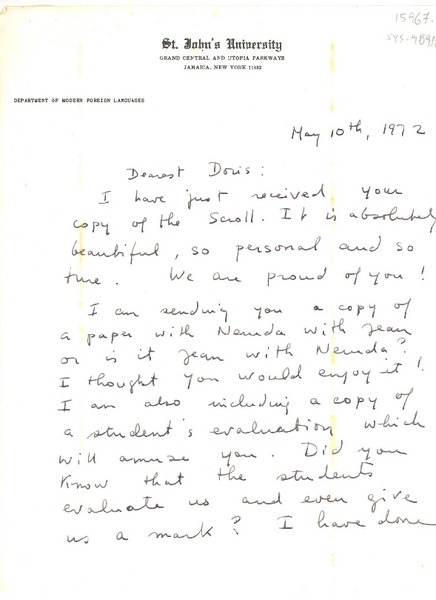 15967.
St. John's University
GRAND CENTRAL AND UTOPIA PARKWAYS
JAMAICA, NEW YORK 11432
DEPARTMENT OF MODERN FOREIGN LANGUAGES
May 10th, 1972
Dearest Doris:
I have just received your
copy of the Scroll. It is absolutely
beautiful, so personal and so
true. We are proud of you!
I am sending you a copy of
a paper with Neruda with Jean
or is it Jean with Neruda?
I thought you would enjoy it!
I am also including a copy of
a student's evaluation which
will amuse you. Did you
know that the students
evaluate us and even give
us a mark? I have done